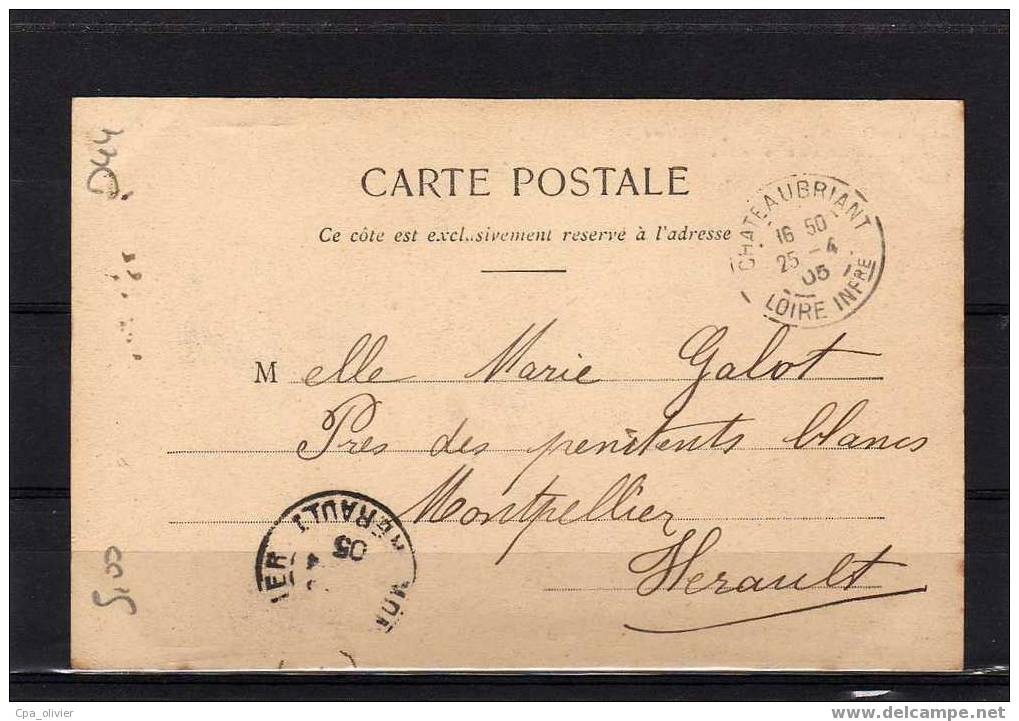 D44
CARTE POSTALE
Ce côte est exclusivement reservé à l'adresse
CHATEAUBRIANT
16 50
25 -4
05
LOIRE INFRE
M elle Marie Galot
Près des penitents blancs
Montpellier
Herault
HÉRAULT
05
4
IER
MON
5,00
Cpa_olivier
www.delcampe.net